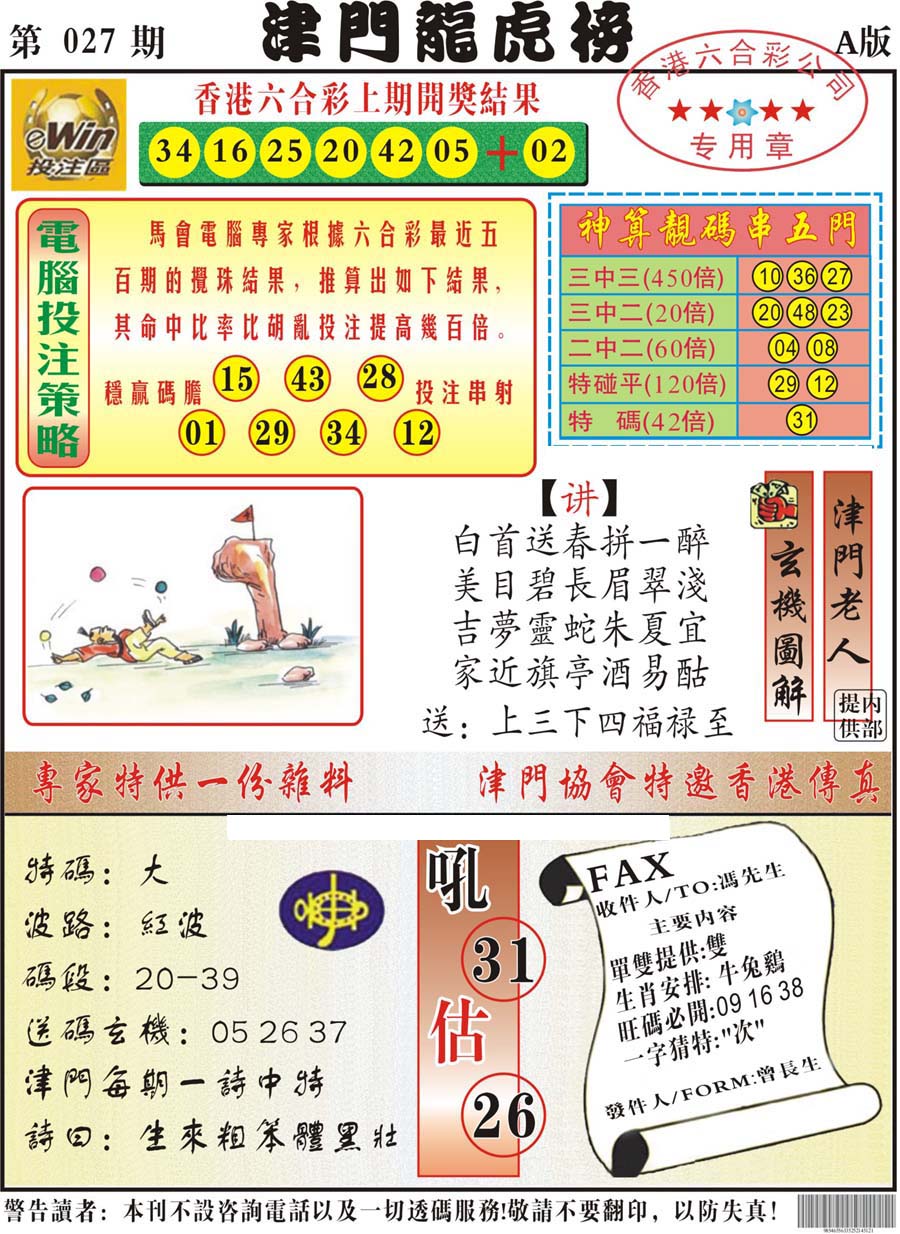 第 027 期
津門龍虎榜
A版
eWin
投注區
香港六合彩上期開獎結果
34 16 25 20 42 05 + 02
香港六合彩公司
★★★★
专用章
電腦投注策略
馬會電腦專家根據六合彩最近五
百期的攪珠結果，推算出如下結果，
其命中比率比胡亂投注提高幾百倍。
穩贏碼膽 15 43 28 投注串射
01 29 34 12
神算靚碼串五門
三中三(450倍) 10 36 27
三中二(20倍) 20 48 23
二中二(60倍) 04 08
特碰平(120倍) 29 12
特 碼(42倍) 31
【讲】
白首送春拼一醉
美目碧長眉翠淺
吉夢靈蛇朱夏宜
家近旗亭酒易酤
送：上三下四福禄至
玄機圖解
津門老人
内部
提供
專家特供一份雜料
津門協會特邀香港傳真
特碼：大
波路：紅波
碼段：20-39
送碼玄機：05 26 37
津門每期一詩中特
詩曰：生來粗笨體黑壯
吼
31
估
26
FAX
收件人/TO:馮先生
主要内容
單雙提供:雙
生肖安排:牛兔鷄
旺碼必開:09 16 38
一字猜特:"次"
發件人/FORM:曾長生
警告讀者：本刊不設咨詢電話以及一切透碼服務!敬請不要翻印，以防失真！